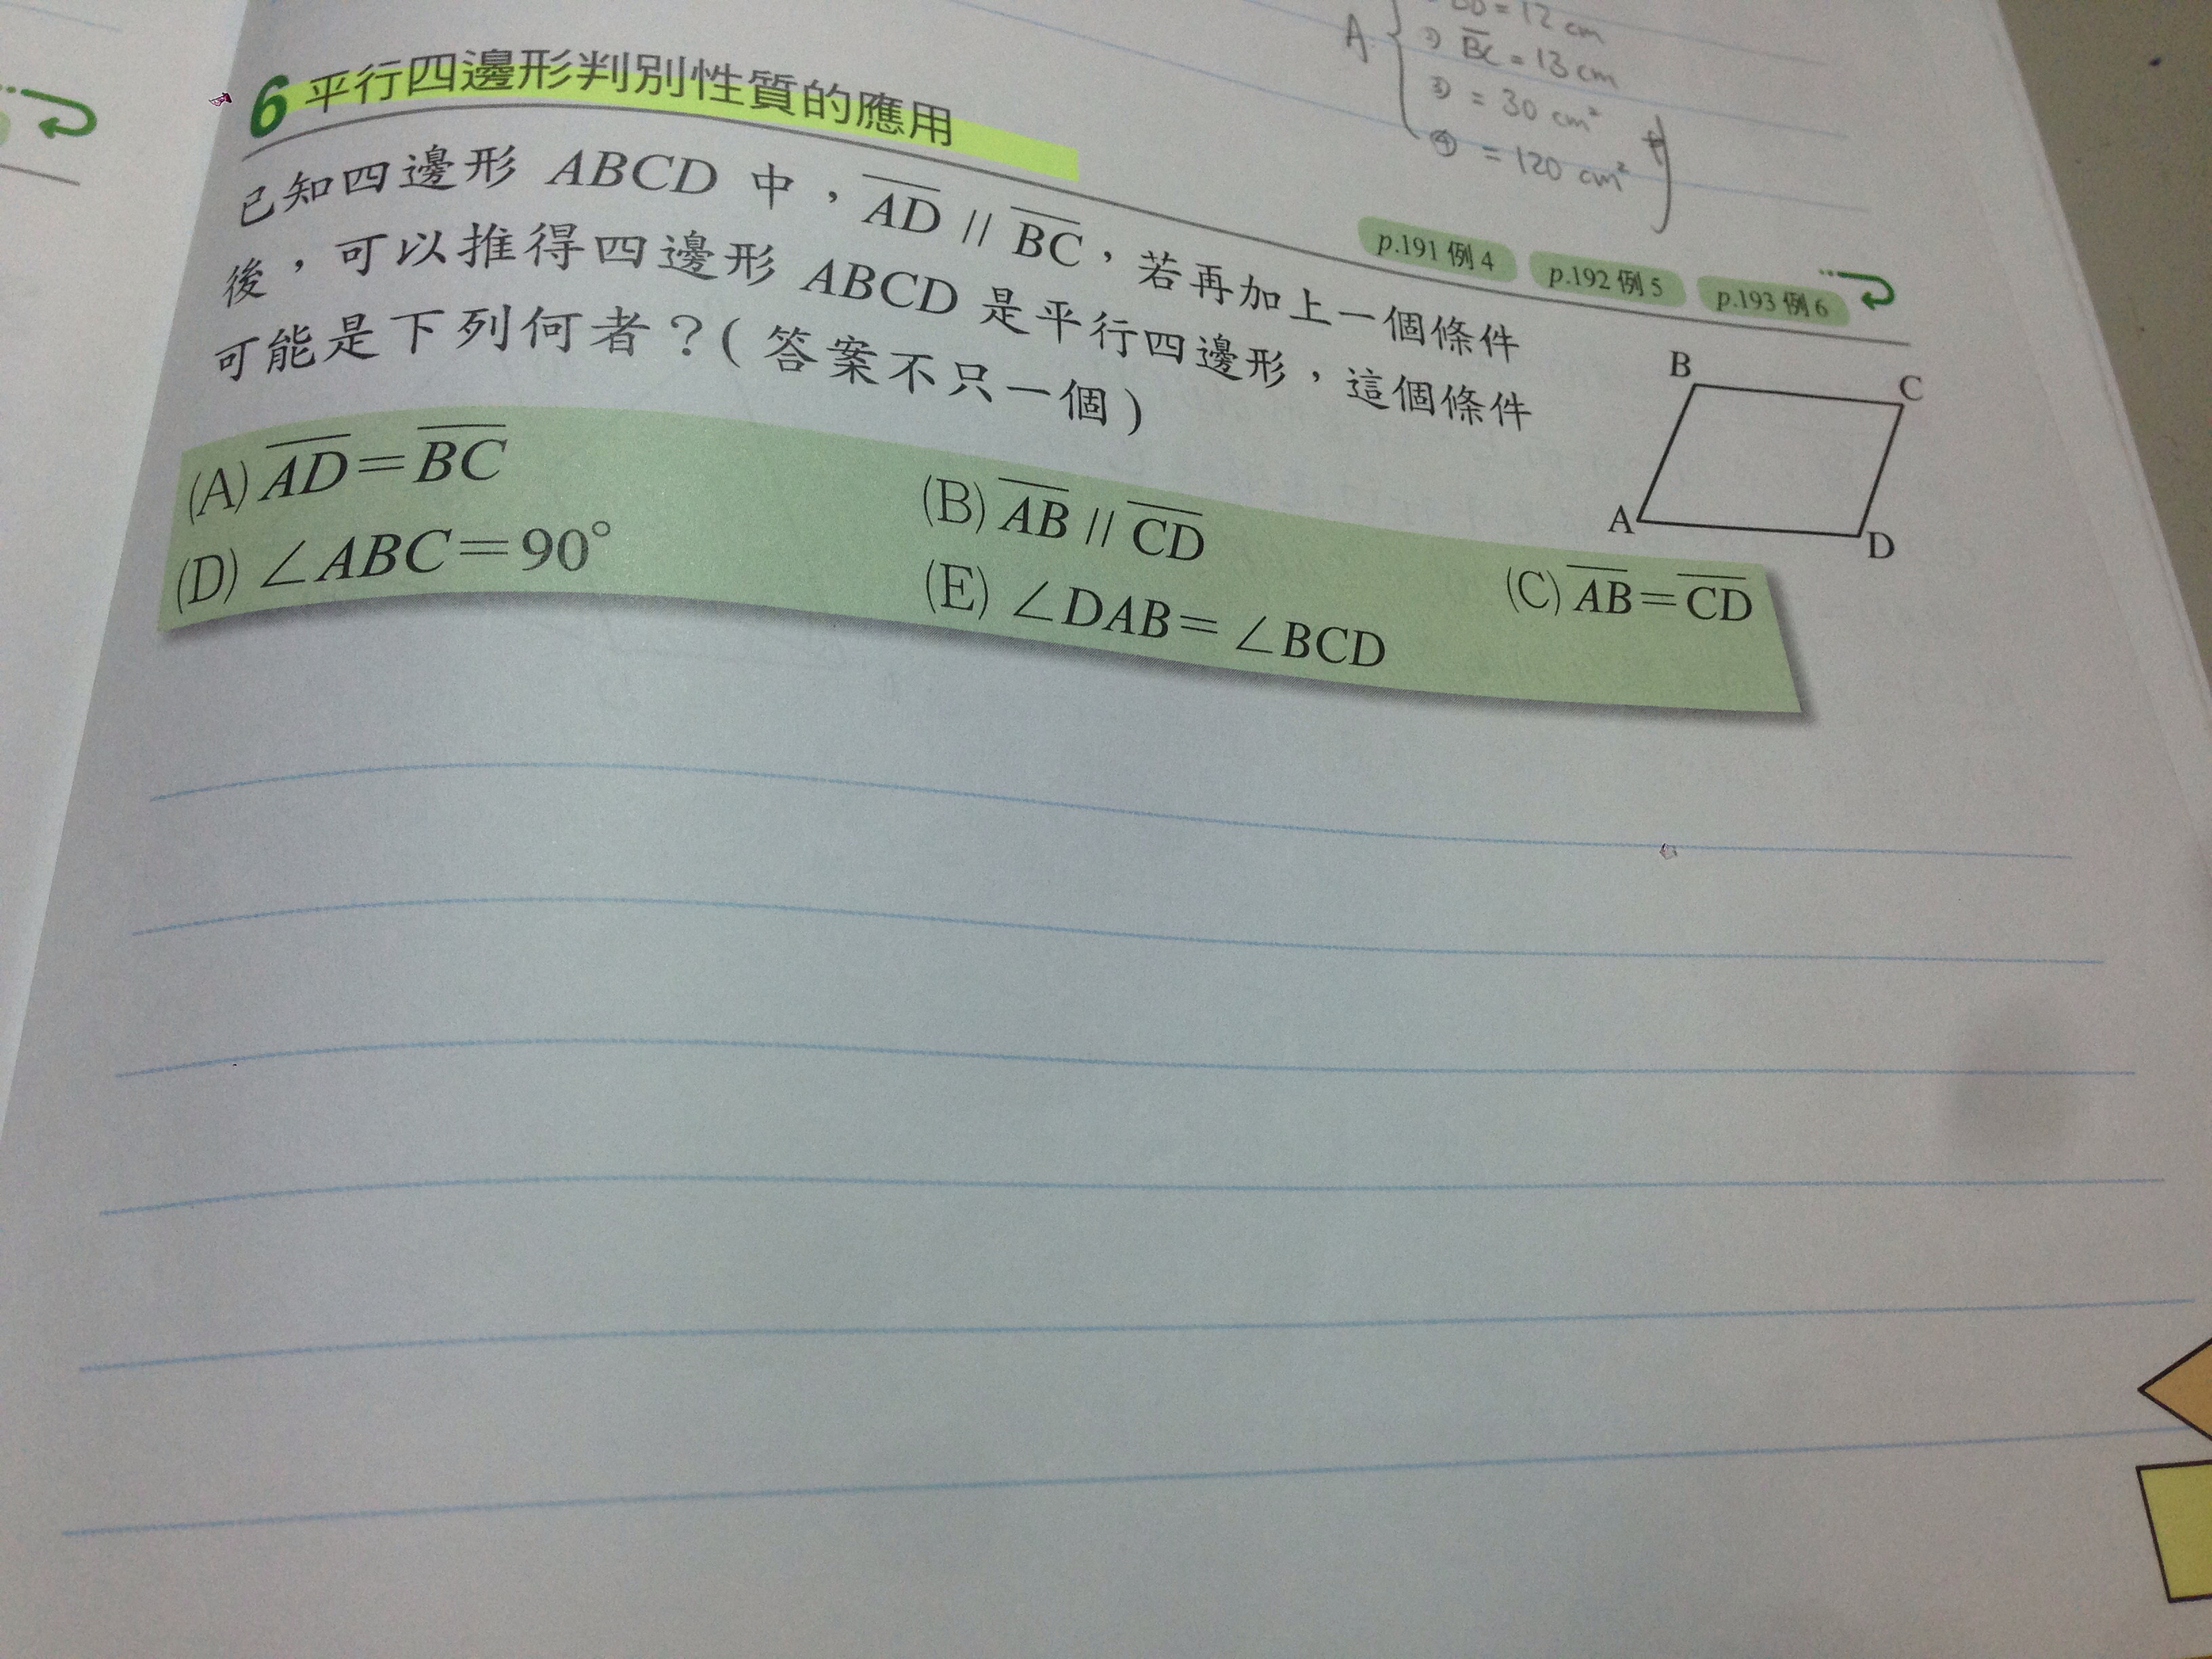 BD = 12 cm
A ② BC = 13 cm
③ = 30 cm²
④ = 120 cm²
6 平行四邊形判別性質的應用
p.191 例 4 p.192 例 5 p.193 例 6
已知四邊形 ABCD 中，AD // BC，若再加上一個條件
後，可以推得四邊形 ABCD 是平行四邊形，這個條件
可能是下列何者？( 答案不只一個 )
B C
A D
(A) AD＝BC (B) AB // CD (C) AB＝CD
(D) ∠ABC＝90° (E) ∠DAB＝∠BCD